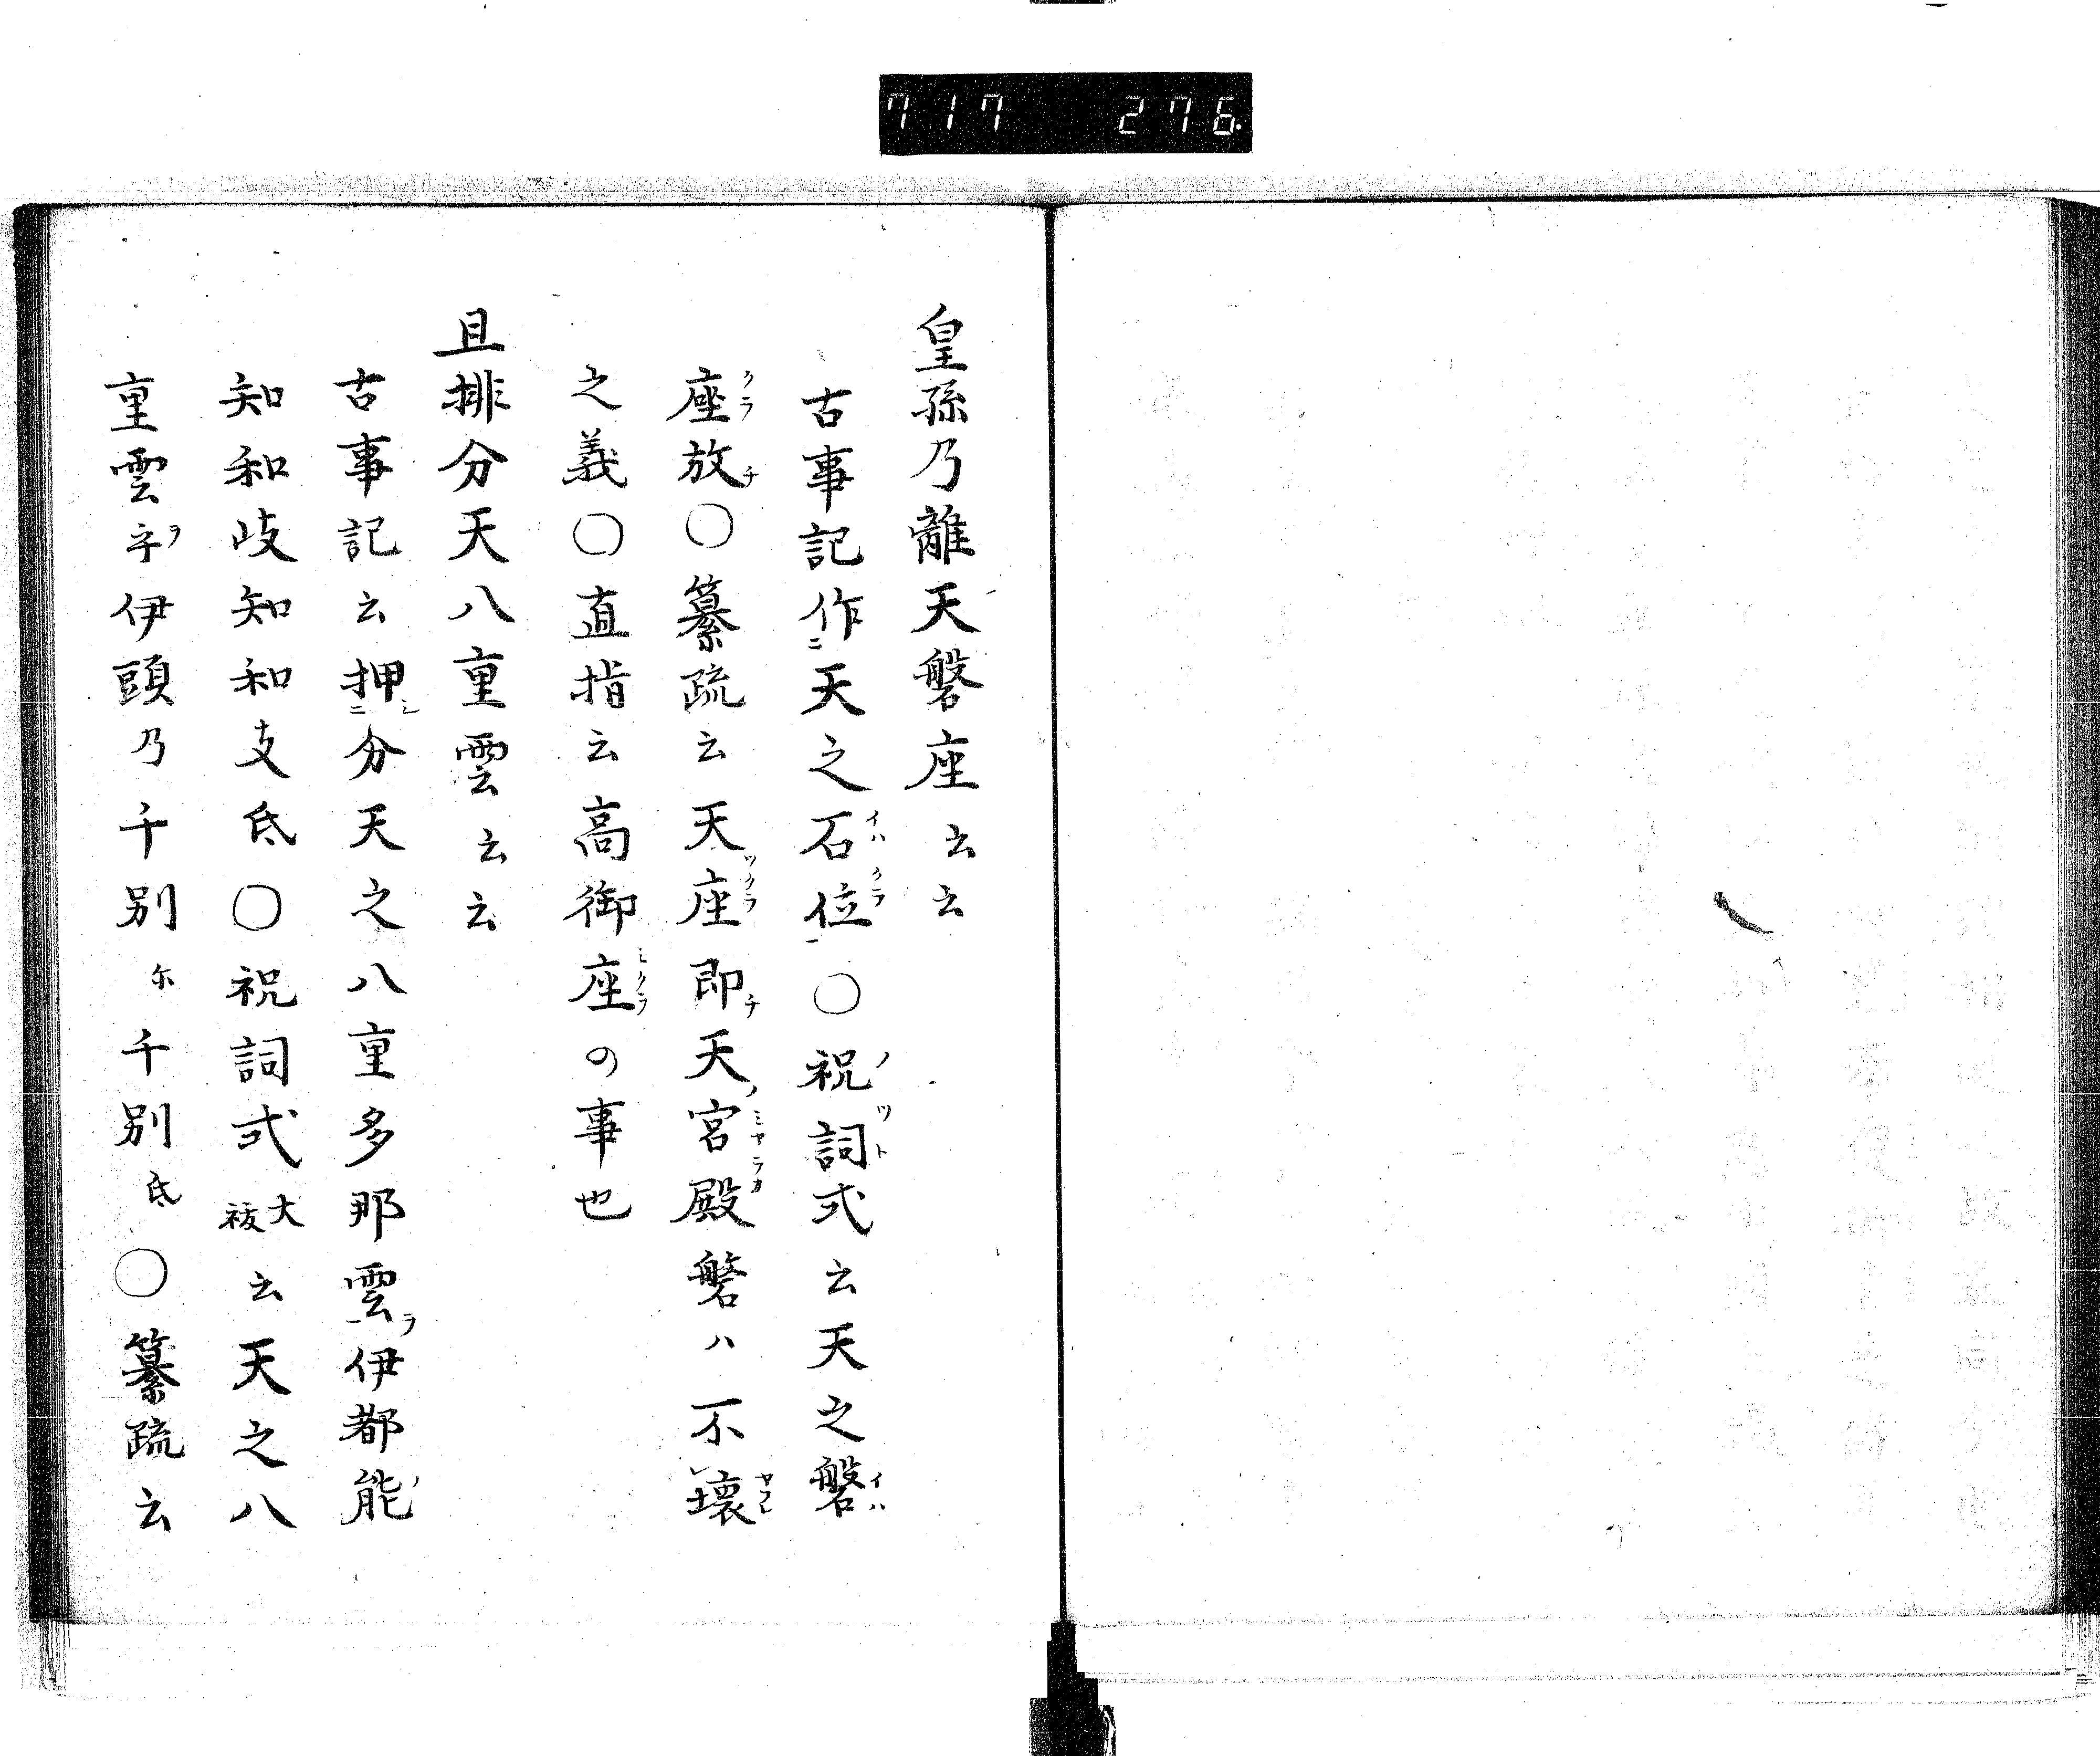 717 276
皇孫乃離天磐座云云
古事記作天之石位〇祝詞式云天之磐
座放〇纂疏云天座即天宮殿磐ハ不壞
之義〇直指云高御座の事也
且排分天八重雲云云
古事記云押分天之八重多那雲伊都能
知和岐知和支氐〇祝詞式大祓云天之八
重雲乎伊頭乃千別尓千別氐〇纂疏云